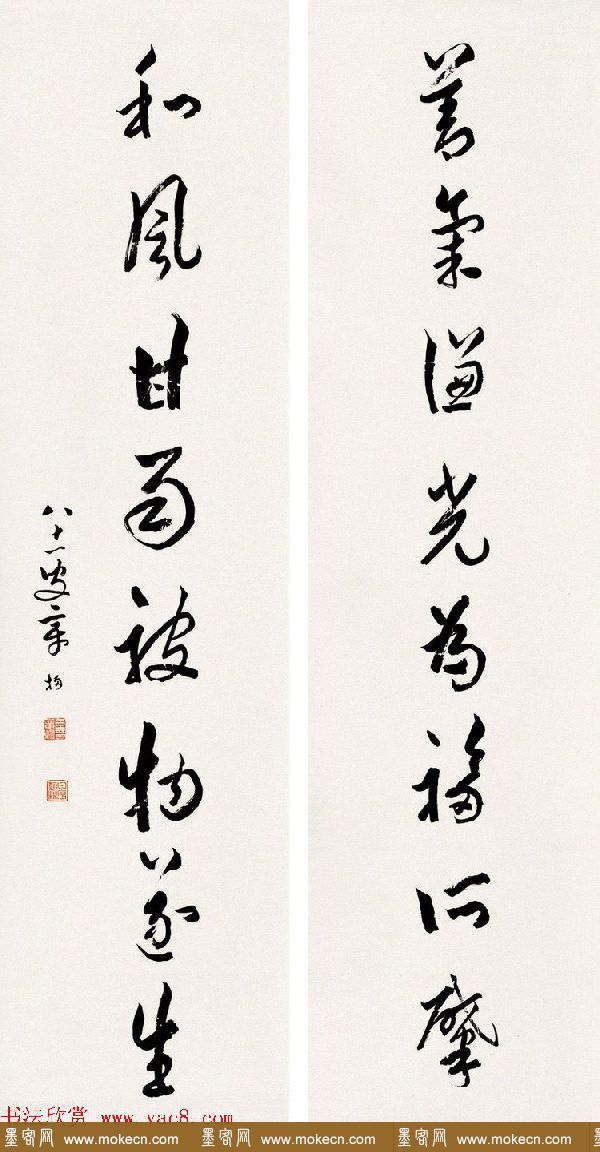 善氣謙光為福所肇
和風甘雨被物遂生
八十一叟章梫
书法欣赏 www.yac8.com
墨客网 www.mokecn.com 墨客网 www.mokecn.com 墨客网 www.mokecn.com 墨